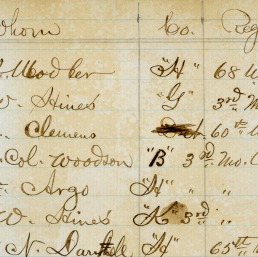 whom Co. Reg
Modker "H" 68
W. Hines "G" 3rd M
Clemens 60th
Col. Woodson "B" 3d Mo. C
Argo "H" " "
W. Hines "K" 3rd " "
N. "H" 65th